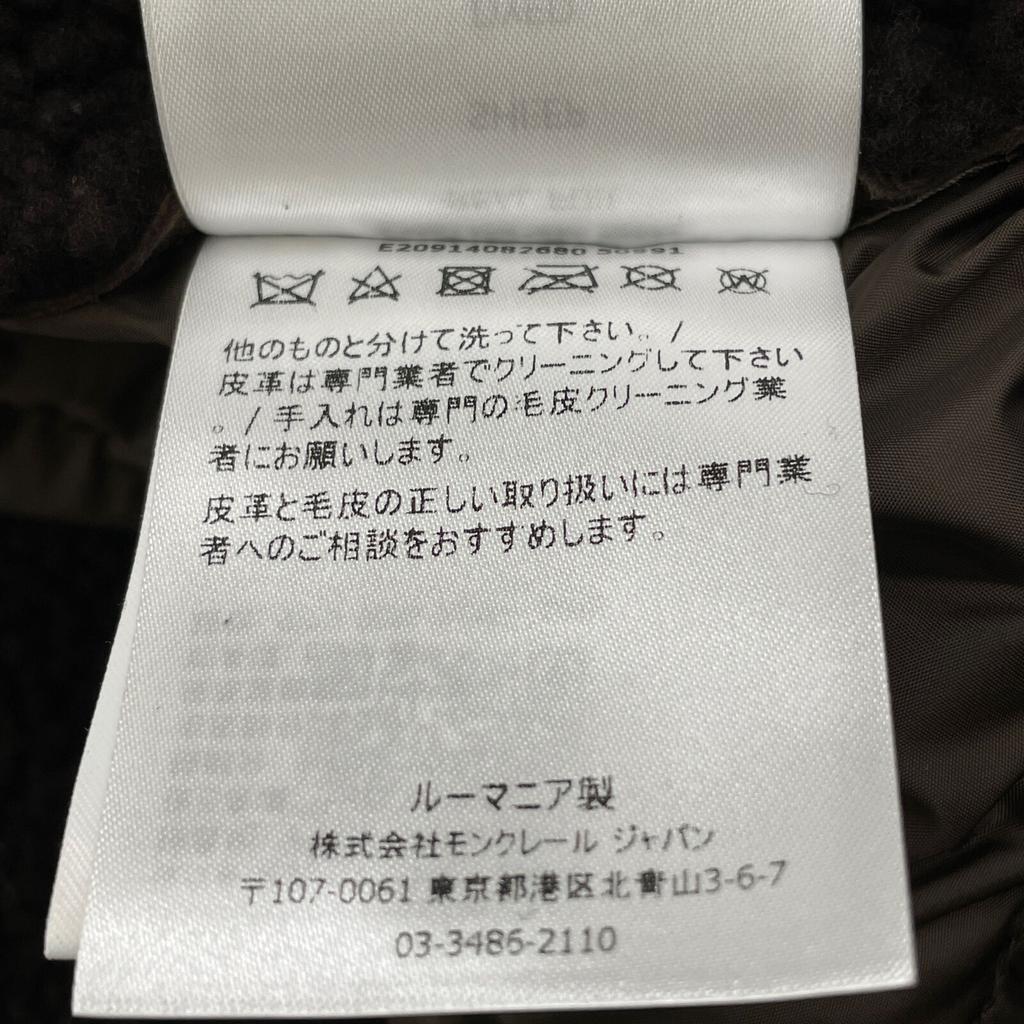 E20914087680 50991
他のものと分けて洗って下さい。/
皮革は専門業者でクリーニングして下さい
。/ 手入れは専門の毛皮クリーニング業
者にお願いします。
皮革と毛皮の正しい取り扱いには専門業
者へのご相談をおすすめします。
ルーマニア製
株式会社モンクレール ジャパン
〒107-0061 東京都港区北青山3-6-7
03-3486-2110